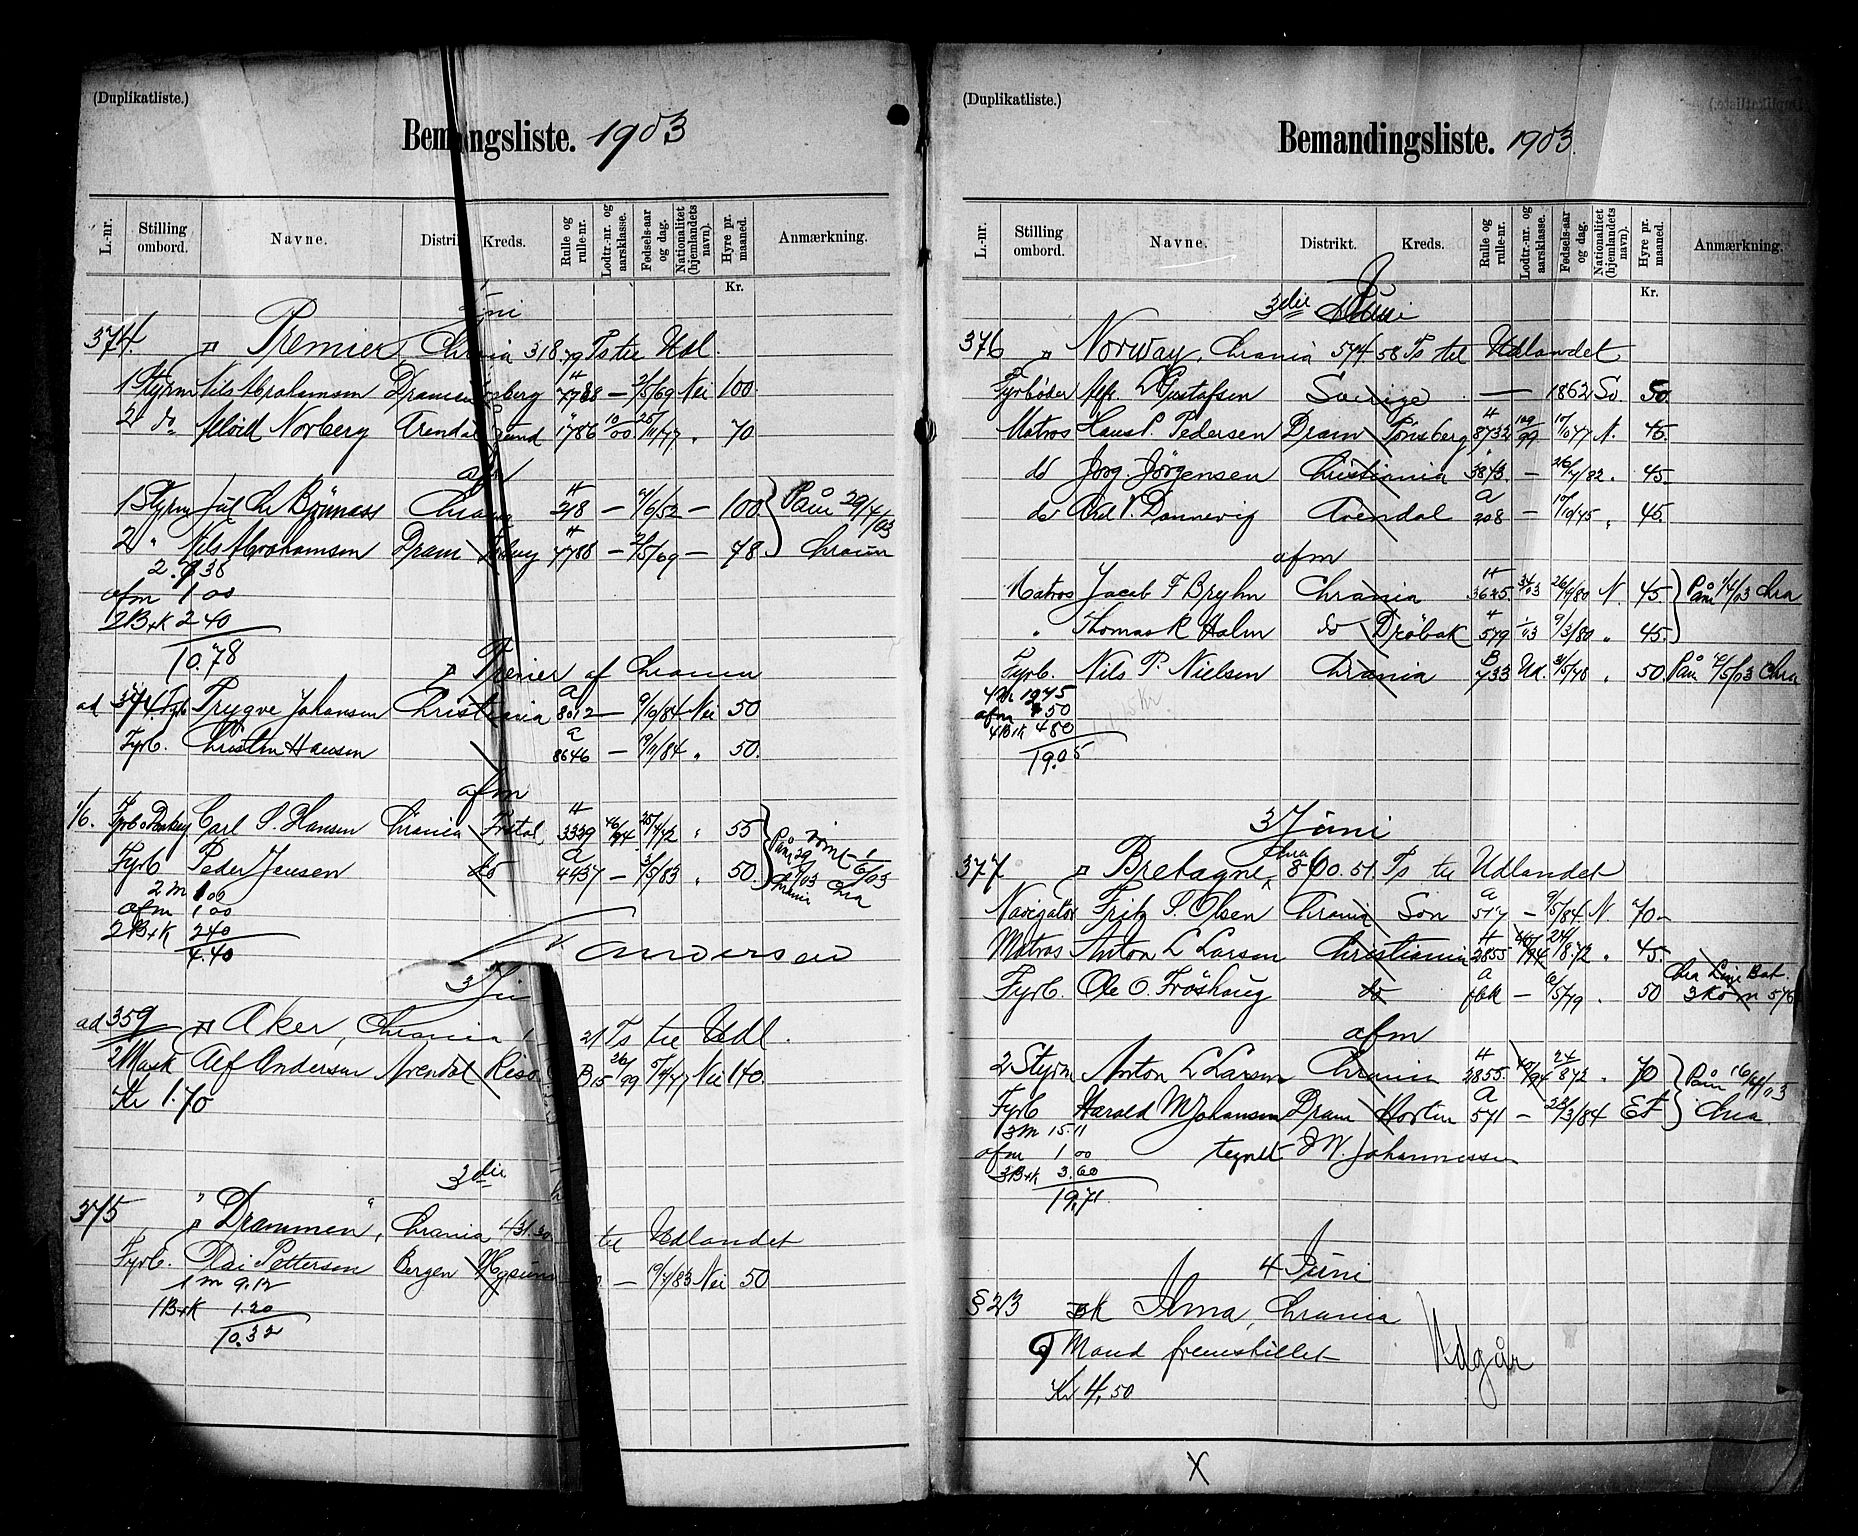 (Duplikatliste.)
Bemandingsliste. 1903
L.-nr. Stilling ombord. Navne. Distrikt. Kreds. Rulle og rulle-nr. Lodtr.-nr. og aarsklasse. Fødsels-aar og dag. Nationalitet (hjemlandets navn). Hyre pr. maaned. Anmærkning.
Kr.
374. Premier, Chrania 318.79 Ts til Udl.
1 Styrm Nils Abrahamsen 7788 — 2/5/69 Nei 100.
2 do Norberg Arendal 1786 10/00 25/11/77 " 70
afm
1 Styrm Jul Chr Bjönnæss Chrania 218 — 4/6/52 — 100 Påm 29/4/03
2 " Nils Abrahamsen Dram 7788 — 2/5/69 — 78 Chrania
2. 738
afm 1 00
2 B+K 2 40
10.78
Premier af Chrania
ad 374. Fyrb Trygve Johansen Christiania a 8012 — 9/9/84 Nei 50
Fyrb. Christen Hansen a 8646 — 9/11/84 " 50.
afm
1/6. Carl S. Hansen Chrania 3339 46/94 25/4/72 " 55
Fyrb Peder Jensen do a 4437 — 3/5/83 " 50
2 m 1 00
afm 1 00
2 B+K 2 40
4.40
Andersen
3 Juni
ad 359 Aker, Chrania 21 Ts til Udl.
2 Mask Alf Andersen Arendal B15 26/99 5/4/77 Nei 140.
Kr 1.70
3die
375 "Drammen", Chrania 431.30 til Udlandet
Fyrb. Olai Pettersen Bergen — 19/4/83 Nei 50
1 m 9.12
1 B+K 1.20
10.32
(Duplikatliste.)
Bemandingsliste. 1903.
L.-nr. Stilling ombord. Navne. Distrikt. Kreds. Rulle og rulle-nr. Lodtr.-nr. og aarsklasse. Fødsels-aar og dag. Nationalitet (hjemlandets navn). Hyre pr. maaned. Anmærkning.
Kr.
3die Juni
376 Norway, Chrania 574 58 Ts til Udlandet
Fyrbøder Alfr. L Gustafsen Sverige — 1862 Sv 50.
Matros Hans P. Pedersen Dram Tønsberg 8732 109/99 10/10/77 N. 45.
do Jørg. Jörgensen Christiania 3843 — 26/4/82 " 45.
do Ard V. Dannevig Arendal a 208 — 10/10/45 " 45.
afm
Matros Jacob F Bryhn Chrania 3645 34/03 26/9/80 N. 45. Påm 1/4/03 Chra
" Thomas R Holm do Drøbak 579 1/03 9/3/80 " 45.
Fyrb. Nils P. Nielsen Chrania B 733 Ud. 31/5/48 " 50 Påm 4/5/03 Chra
4 M 1275
afm 1 50
4 B+K 4 80
19.05
3 Juni
377 Bretagne, Chra 860.51 Ts til Udlandet
Navigatør Fritz S. Olsen Chrania Son a 517 — 9/5/84 N. 70 –
Matros Anton L Larsen Christiania 2855 40/94 24/8 72 " 45.
Fyrb. Ole O. Fröshaug do a — 6/5/79 " 50
afm
2 Styrm Anton L Larsen Chrania 2855. 40/94 24/872 " 70 Påm 16/4/03
Fyrb Harald M Johansen Dram Horten A 571 — 22/3/84 Et Chra.
3 M 15.11
afm 1 00 tegnet M. Johannessen
3 B+K 3.60
19.71.
4 Juni
§ 23 Alma, Chrania
9 Mand fremstillet Udgår
Kr 4,50
X